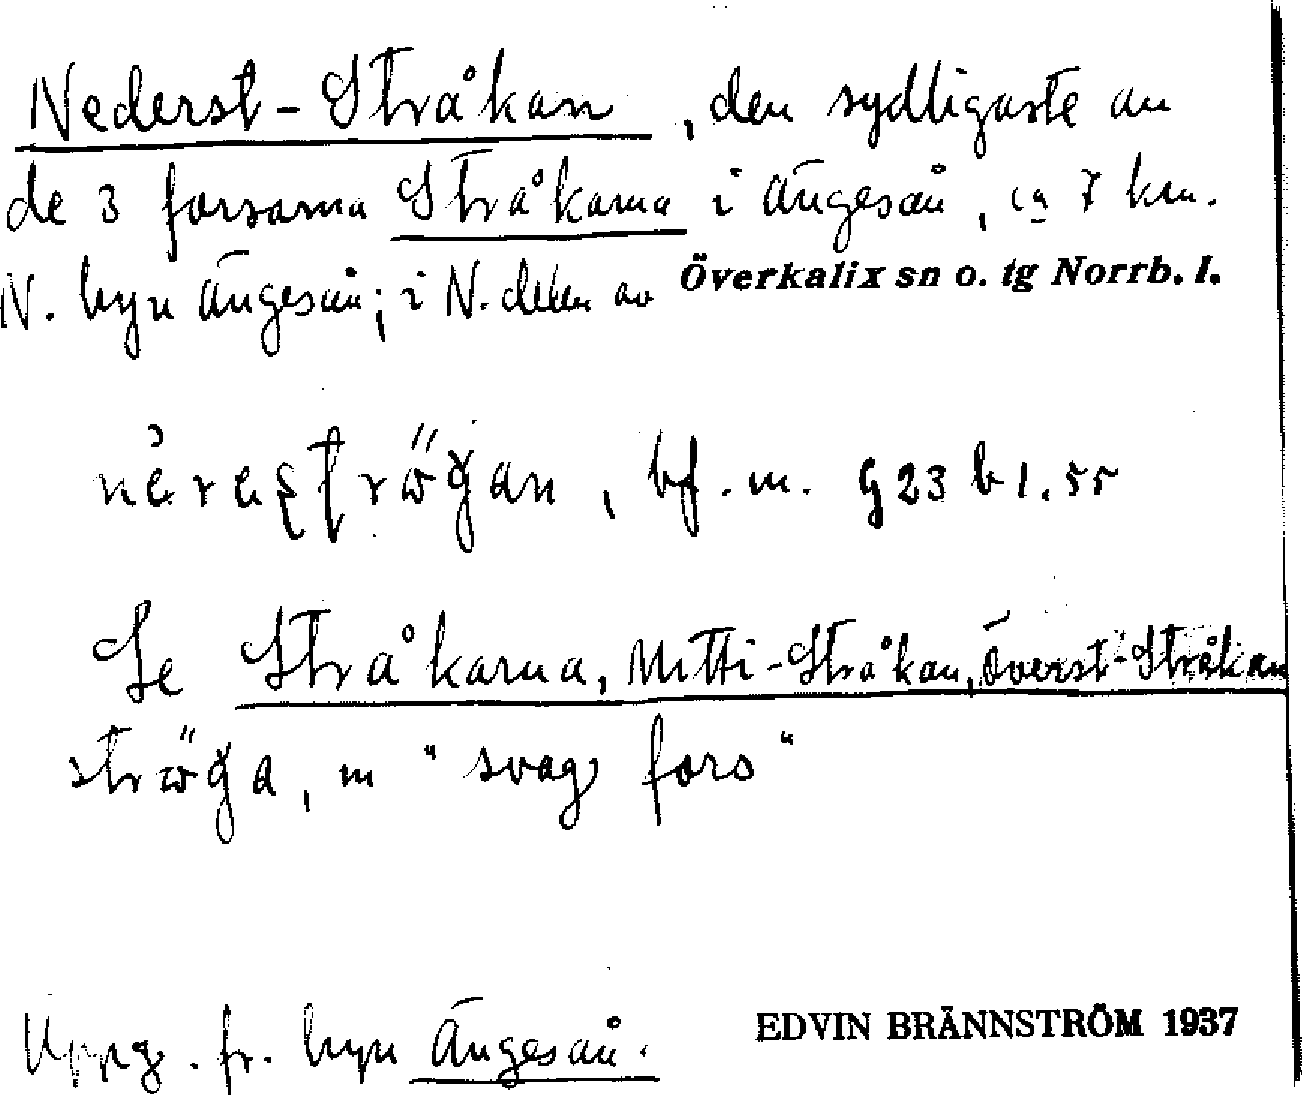 Nederst-Stråkan, den sydligaste av
de 3 forsarna Stråkarna i Ängesån, ca 7 km.
N. byn Ängesån; i N. delen av Överkalix sn o. tg Norrb. l.
bf. m. G 23 b 1.55
Se Stråkarna, Mitti-Stråkan, Överst-Stråkan
m "svag fors"
Uppg. fr. byn Ängesån.
EDVIN BRÄNNSTRÖM 1937